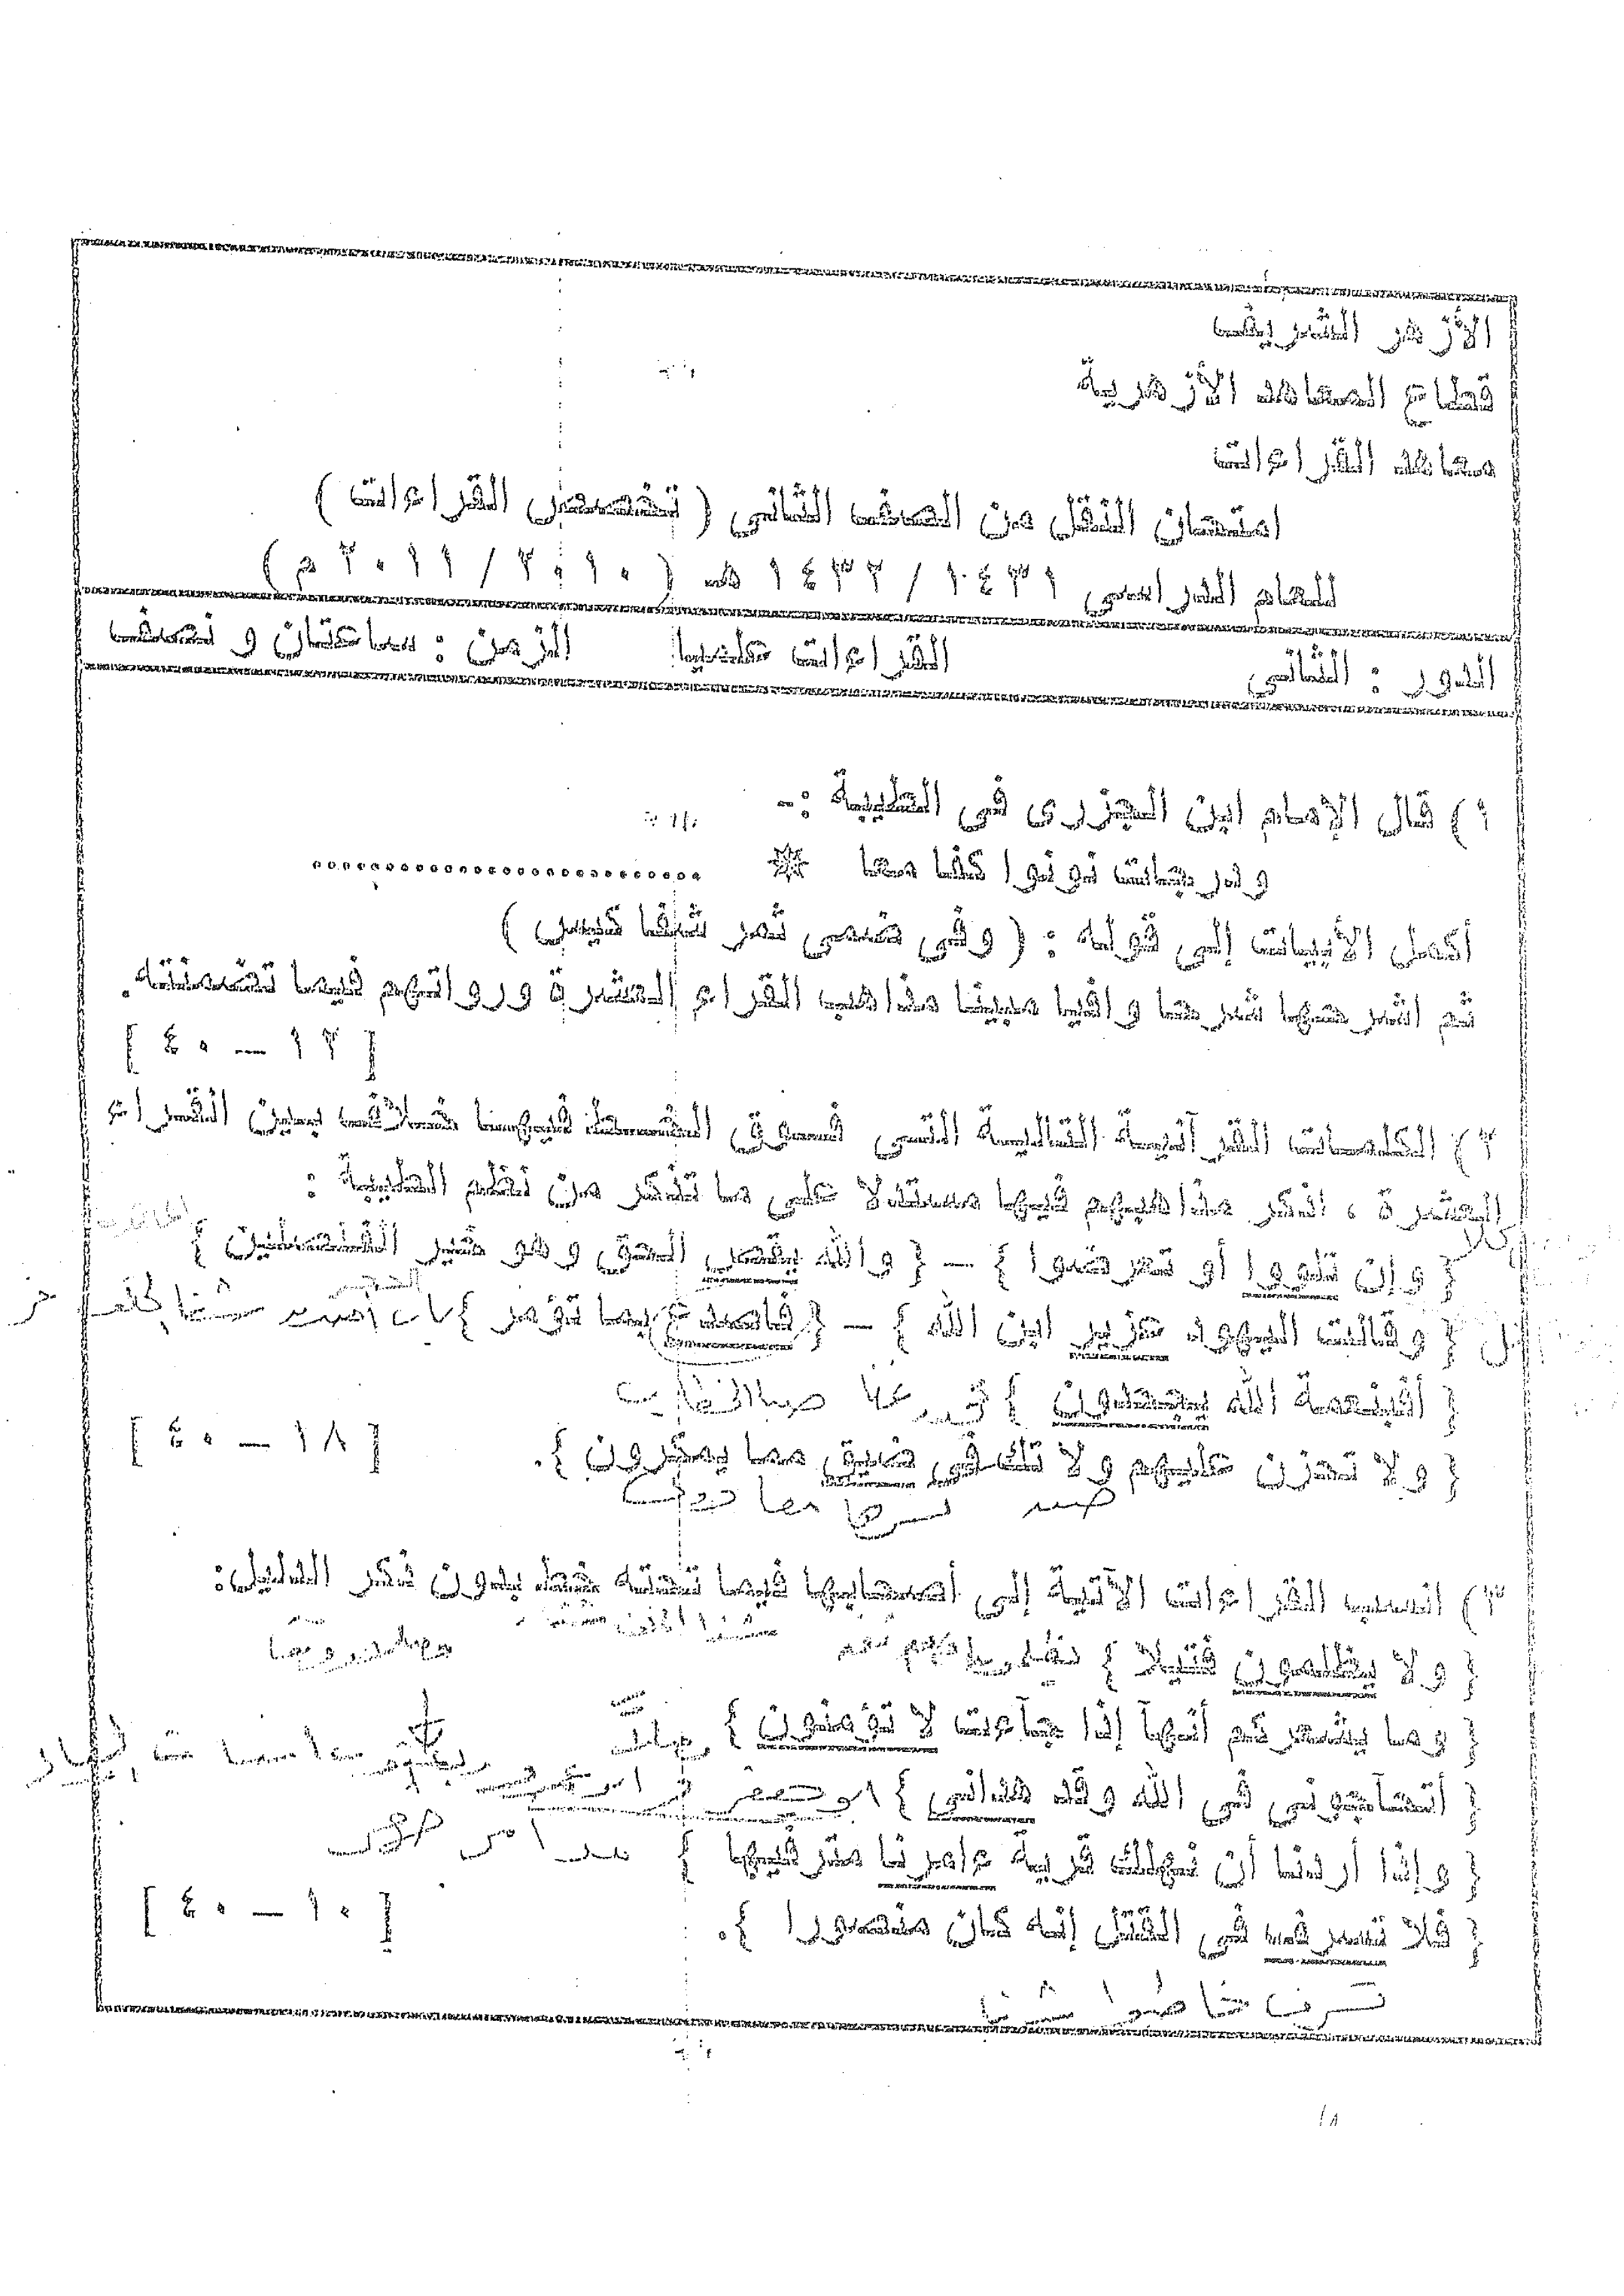 الأزهر الشريف
قطاع المعاهد الأزهرية
معاهد القراءات
امتحان النقل من الصف الثاني ( تخصص القراءات )
للعام الدراسي ١٤٣١ / ١٤٣٢ هـ ( ٢٠١٠ / ٢٠١١ م )
الدور : الثاني القراءات علميا الزمن : ساعتان و نصف
١ ) قال الإمام ابن الجزرى فى الطيبة :-
ودرجات نونوا كفا معا ..........................
أكمل الأبيات إلى قوله : ( وفى ضمى ثمر شفا كيس )
ثم اشرحها شرحا وافيا مبينا مذاهب القراء العشرة ورواتهم فيما تضمنته.
[ ١٢ – ٤٠ ]
٢ ) الكلمات القرآنية التالية التى فوق الخط فيها خلاف بين القراء
العشرة ، اذكر مذاهبهم فيها مستدلا على ما تذكر من نظم الطيبة :
{ وإن تلووا أو تعرضوا } – { والله يقضى الحق وهو خير الفاصلين }
{ وقالت اليهود عزير ابن الله } – { فاصدع بما تؤمر }
{ أفبنعمة الله يجحدون }
{ ولا تحزن عليهم ولا تك فى ضيق مما يمكرون }. [ ١٨ – ٤٠ ]
٣ ) انسب القراءات الآتية إلى أصحابها فيما تحته خط بدون ذكر الدليل:
{ ولا يظلمون فتيلا }
{ وما يشعركم أنها إذا جاءت لا تؤمنون }
{ أتحاجونى فى الله وقد هدانى }
{ وإذا أردنا أن نهلك قرية ءامرنا مترفيها }
{ فلا تسرف فى القتل إنه كان منصورا }. [ ١٠ – ٤٠ ]